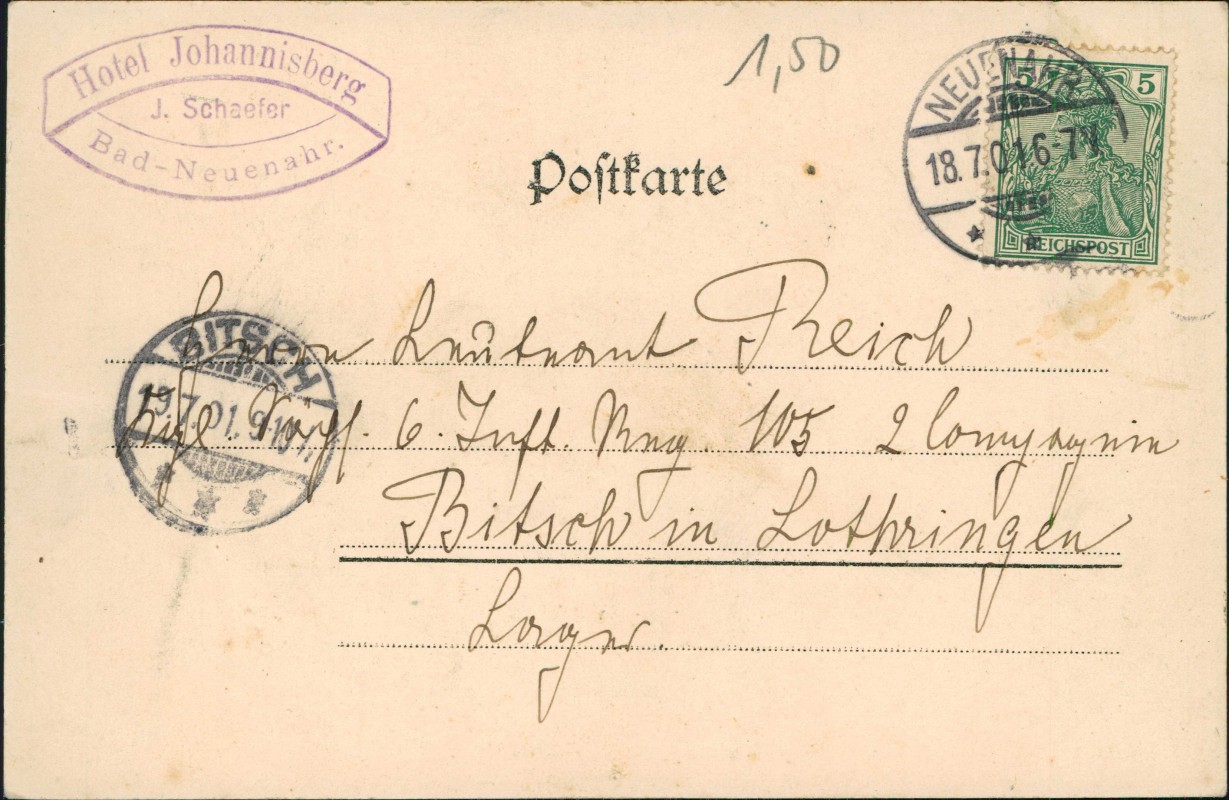 Hotel Johannisberg
J. Schaefer
Bad-Neuenahr.
1,50
Postkarte
NEUENAHR
18.7.01.6-7N
5 5
REICHSPOST
BITSCH
19.7.01.9-10
Herrn Leutnant Reich
Kgl. Sächs. 6. Inft. Rng. 105 2 Compagnie
Bitsch in Lothringen
Lager.